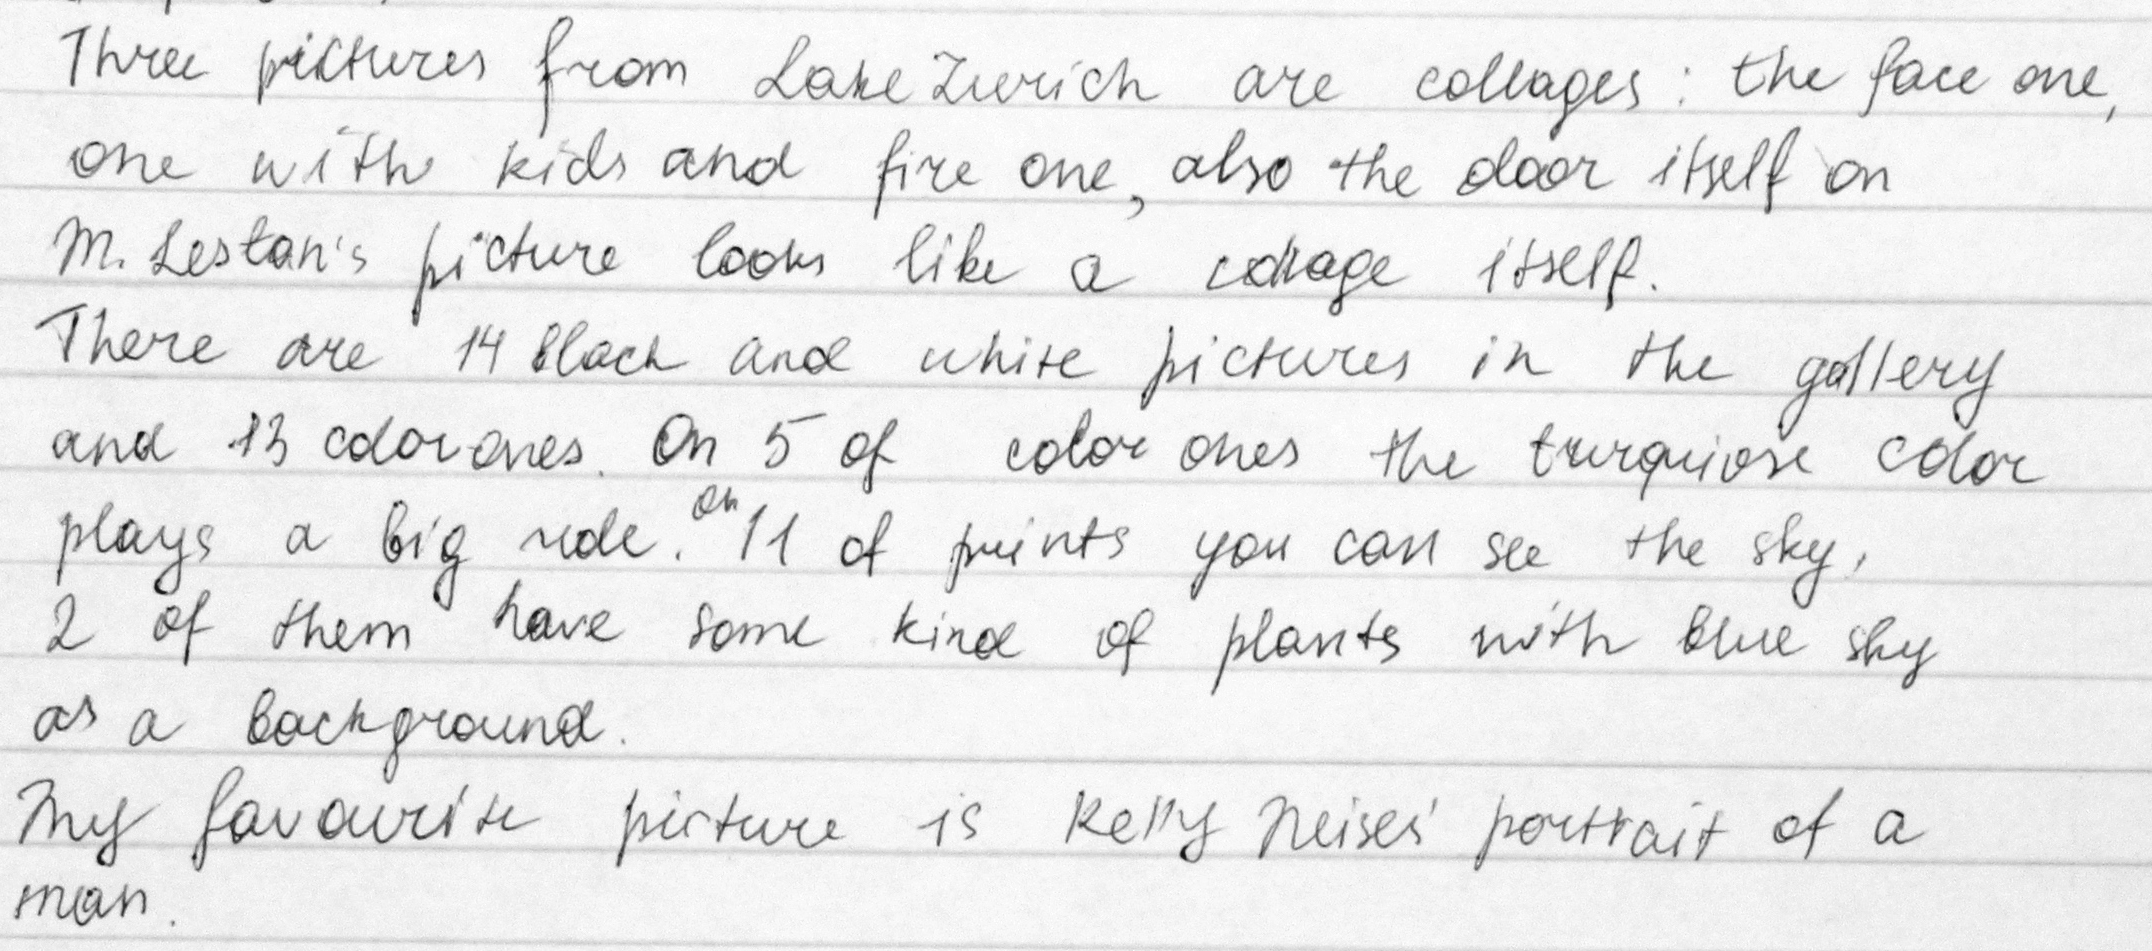 Three pictures from Lake Zurich are collages: the face one,
one with kids and fire one, also the door itself on
M. Lestan's picture looks like a collage itself.
There are 14 black and white pictures in the gallery
and 13 color ones. On 5 of color ones the turquiose color
plays a big role. On 11 of prints you can see the sky,
2 of them have some kind of plants with blue sky
as a background.
My favourite picture is Kelly Neises' portrait of a
man.